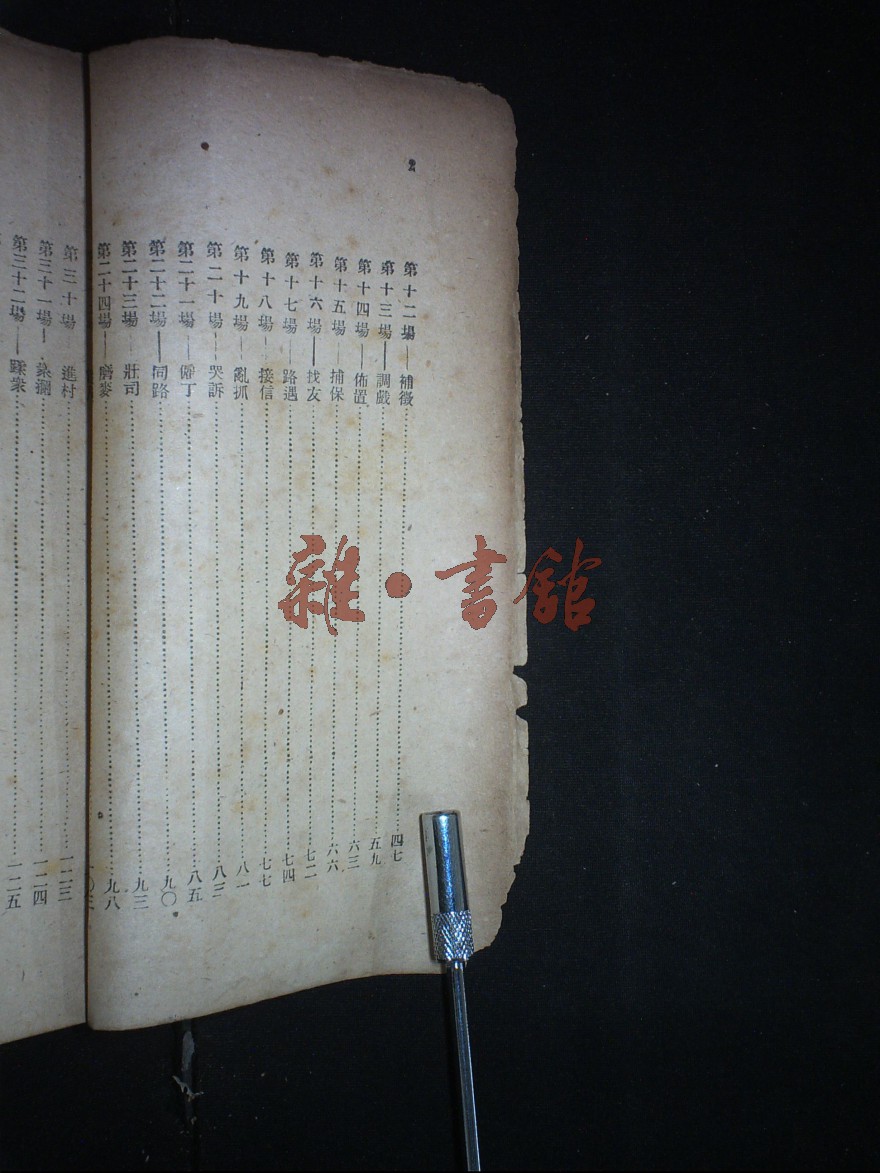 2
第十二場——補徵……四七
第十三場——調戲……五九
第十四場——佈置……六三
第十五場——捕保……六六
第十六場——找友……七二
第十七場——路遇……七四
第十八場——接信……七七
第十九場——亂抓……八一
第二十場——哭訴……八三
第二十一場——僱丁……八五
第二十二場——同路……九〇
第二十三場——壯司……九三
第二十四場——磨麥……九八
第三十場——進村……一二三
第三十一場——……一二四
第三十二場——……一二五
雜·書館